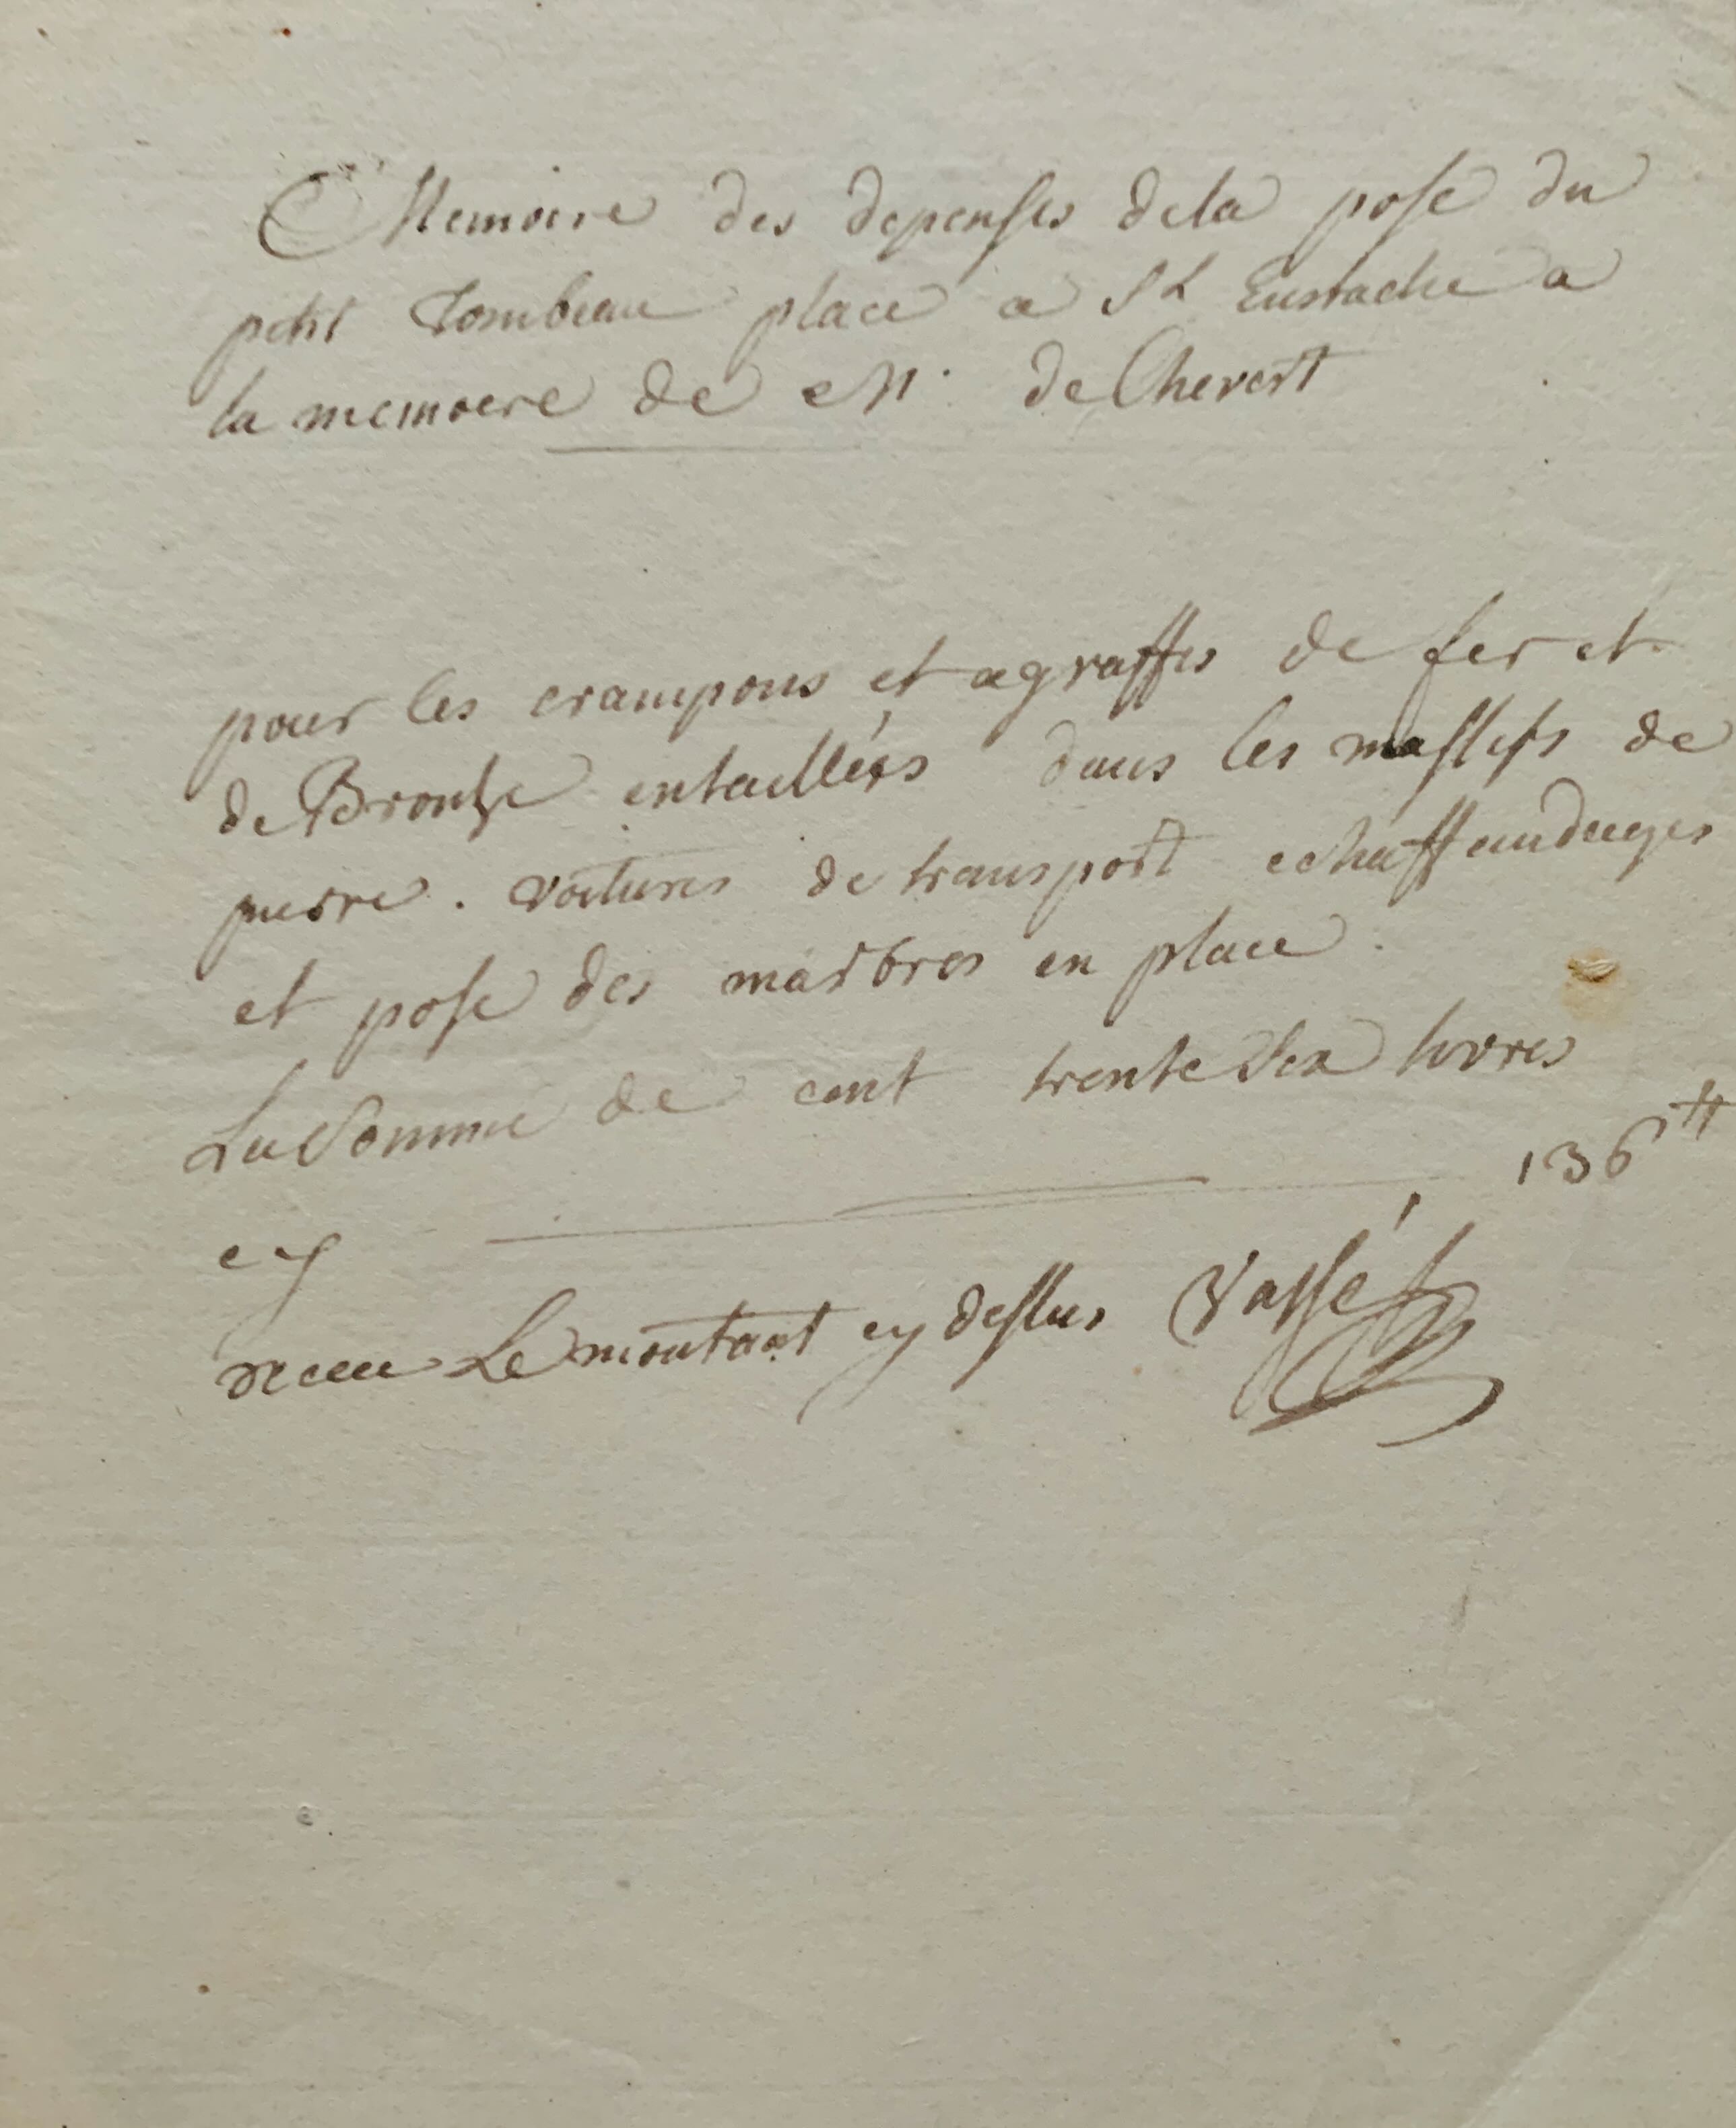 Memoire des depenses dela pose du
petit Tombeau placé a St Eustache a
la memoire de M. de Chevert
pour les crampons et agraffes de fer et
de Brontze entaillées dans les massifs de
pierre. voitures de transport echaffaudages
et pose des marbres en place.
La Somme de cent trente six livres
cy 136 ₶
receu Le montant cy dessus Vassé